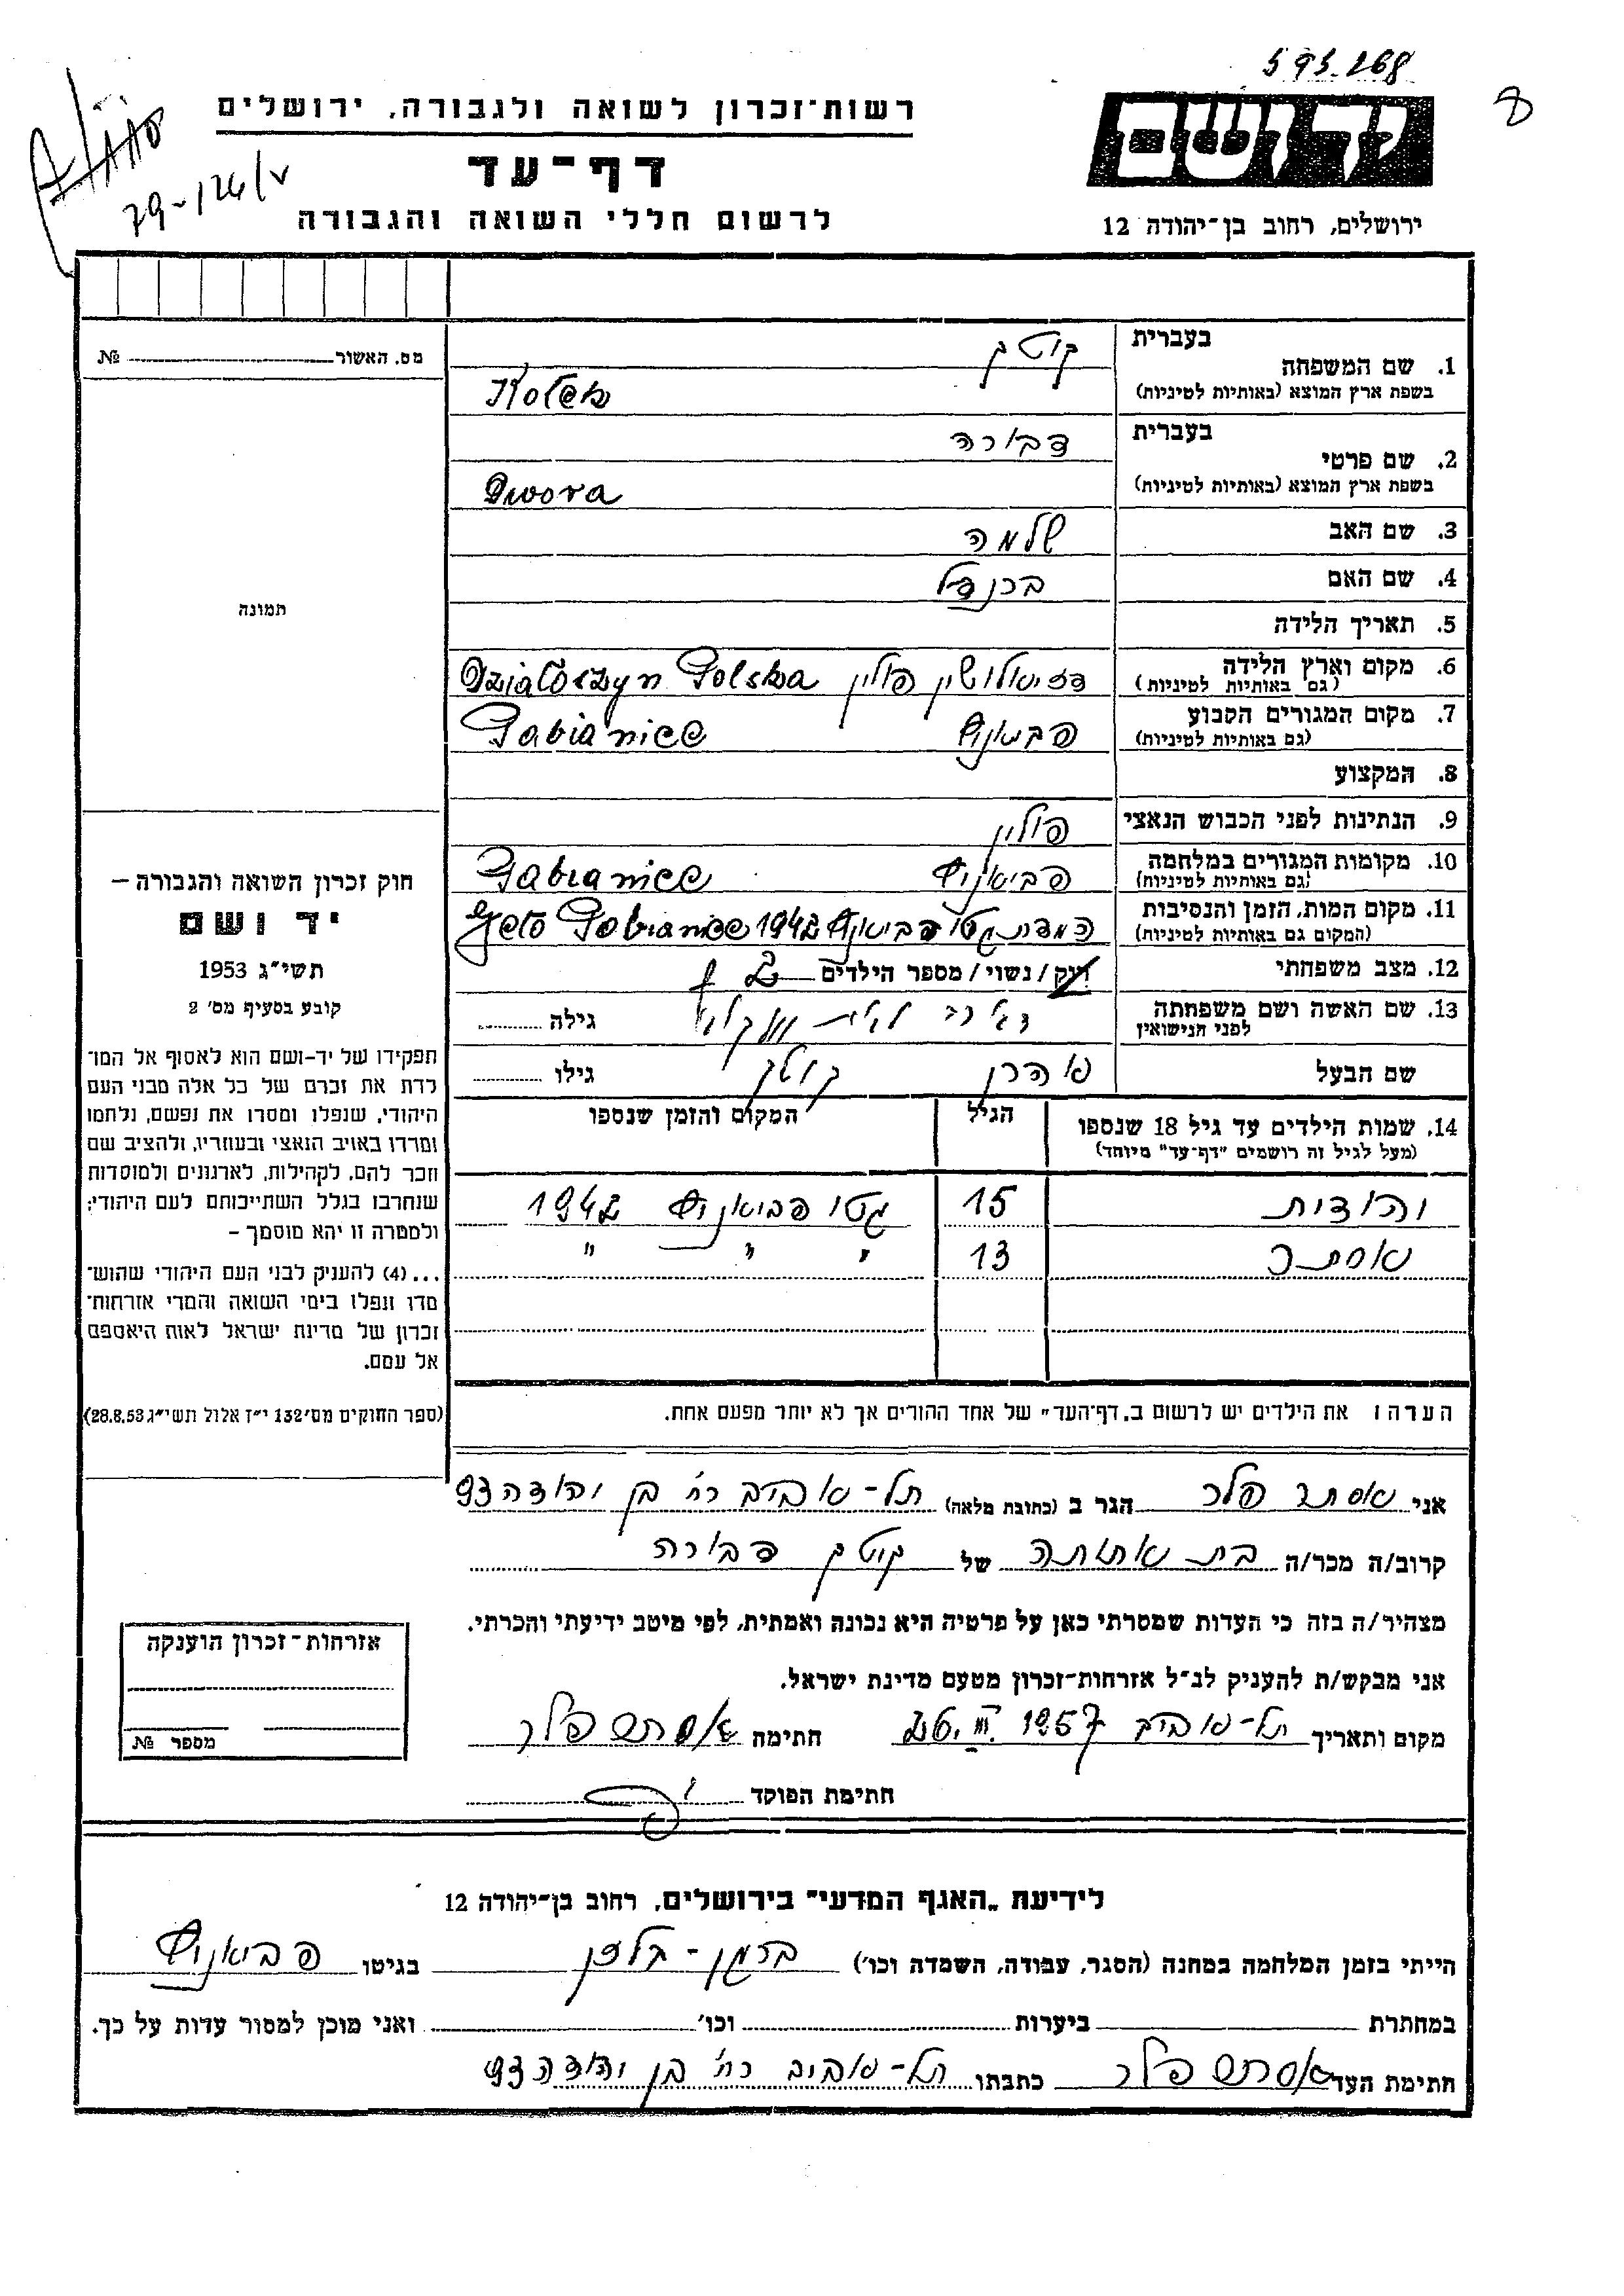 595.268
8
79-124/v
רשות-זכרון לשואה ולגבורה, ירושלים
דף-עד
לרשום חללי השואה והגבורה
יד ושם
ירושלים, רחוב בן-יהודה 12
מס. האשור № 
תמונה
חוק זכרון השואה והגבורה –
יד ושם
תשי"ג 1953
קובע בסעיף מס' 2
תפקידו של יד-ושם הוא לאסוף אל המו־
לדת את זכרם של כל אלה מבני העם
היהודי, שנפלו ומסרו את נפשם, נלחמו
ומרדו באויב הנאצי ובעוזריו, ולהציב שם
וזכר להם, לקהילות, לארגונים ולמוסדות
שנחרבו בגלל השתייכותם לעם היהודי;
ולמטרה זו יהא מוסמך –
...(4) להעניק לבני העם היהודי שהוש־
מדו ונפלו בימי השואה והמרי אזרחות־
זכרון של מדינת ישראל לאות היאספם
אל עמם.
(ספר החוקים מס' 132 י"ז אלול תשי"ג 28.8.53)
1. שם המשפחה בעברית קוטק
בשפת ארץ המוצא (באותיות לטיניות) Kotek
2. שם פרטי בעברית דבורה
בשפת ארץ המוצא (באותיות לטיניות) Dwora
3. שם האב שלמה
4. שם האם
5. תאריך הלידה
6. מקום וארץ הלידה (גם באותיות לטיניות) דזיאלושין פולין Działoszyn Polska
7. מקום המגורים הקבוע (גם באותיות לטיניות) פביאניץ Pabianice
8. המקצוע
9. הנתינות לפני הכבוש הנאצי פולין
10. מקומות המגורים במלחמה (גם באותיות לטיניות) פביאניץ Pabianice
11. מקום המות, הזמן והנסיבות (המקום גם באותיות לטיניות) גטו פביאניץ 1942 Geto Pabianice
12. מצב משפחתי רוק / נשוי / מספר הילדים
13. שם האשה ושם משפחתה לפני הנישואין לבית גילה
שם הבעל אהרן קוטק גילו
14. שמות הילדים עד גיל 18 שנספו הגיל המקום והזמן שנספו
(מעל לגיל זה רושמים "דף-עד" מיוחד)
יהודית 15 גטו פביאניץ 1942
אסתר 13 " " "
הערה: את הילדים יש לרשום ב"דף-העד" של אחד ההורים אך לא יותר מפעם אחת.
אני אסתר פלר הגר ב (כתובת מלאה) תל-אביב רח' בן יהודה 93
קרוב/ה מכר/ה בת אחותה של קוטק דבורה
מצהיר/ה בזה כי העדות שמסרתי כאן על פרטיה היא נכונה ואמתית, לפי מיטב ידיעתי והכרתי.
אני מבקש/ת להעניק לנ"ל אזרחות-זכרון מטעם מדינת ישראל.
מקום ותאריך תל-אביב 1957 חתימה אסתר פלר
חתימת הפוקד
אזרחות-זכרון הוענקה
מספר №
לידיעת "האגף המדעי" בירושלים, רחוב בן-יהודה 12
הייתי בזמן המלחמה במחנה (הסגר, עבודה, השמדה וכו') ברגן-בלזן בגיטו פביאניץ
במחתרת ביערות וכו' ואני מוכן למסור עדות על כך.
חתימת העד אסתר פלר כתבתו תל-אביב רח' בן יהודה 93